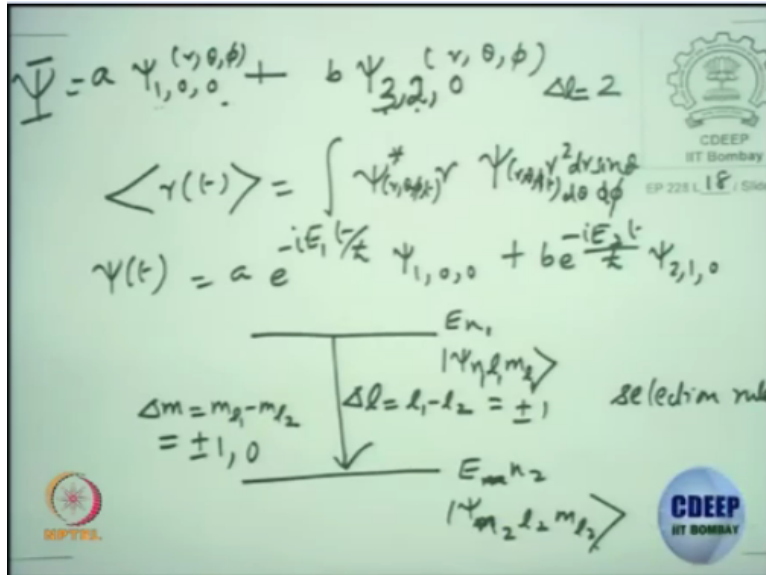 Ψ = a Ψ₁,₀,₀ (r, θ, φ) + b Ψ₃,₂,₀ (r, θ, φ) Δl = 2
CDEEP
IIT Bombay
EP 228 L 18 / Slide
<r(t)> = ∫ Ψ*(r,θ,φ,t) r Ψ(r,θ,φ,t) r² dr sinθ dθ dφ
Ψ(t) = a e^{-iE₁t/ħ} Ψ₁,₀,₀ + b e^{-iE₂t/ħ} Ψ₂,₁,₀
E n₁
|Ψ n₁ l₁ m_{l₁}>
Δm = m_{l₁} - m_{l₂} = ±1, 0
Δl = l₁ - l₂ = ±1
selection rul
E n₂
|Ψ n₂ l₂ m_{l₂}>
NPTEL
CDEEP
IIT BOMBAY